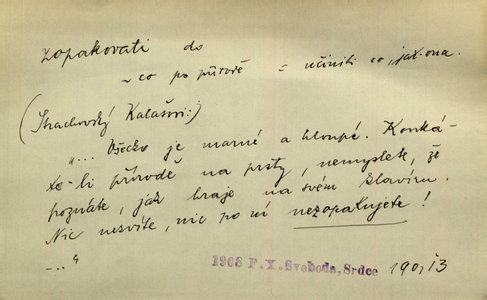 zopakovati do
~ co po přírodě = učiniti co, jak ona.
(Strachovský Kalašovi:)
"... Všecko je marné a hloupé. Kouká-
te-li přírodě na prsty, nemyslete, že
poznáte, jak hraje na svém klavíru.
Nic nesvíte, nic po ní nezopakujete!
..."
1968 F.X.Svoboda, Srdce 190, 13